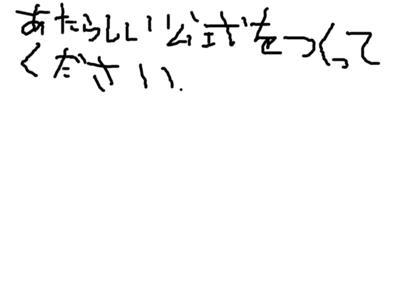 あたらしい公式をつくって
ください.